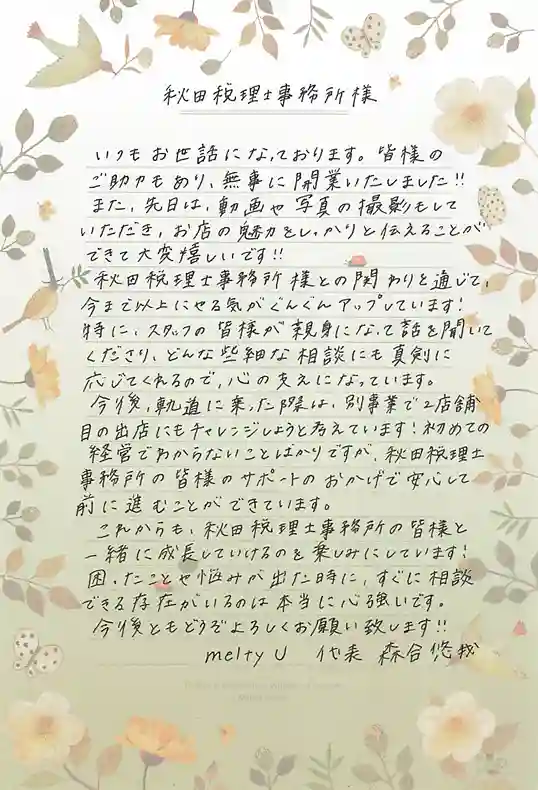 秋田税理士事務所様
いつもお世話になっております。皆様の
ご助力もあり、無事に開業いたしました!!
また、先日は、動画や写真の撮影もして
いただき、お店の魅力をしっかりと伝えることが
できて大変嬉しいです!!
秋田税理士事務所様との関わりを通じて、
今まで以上にやる気がぐんぐんアップしています!
特に、スタッフの皆様が親身になって話を聞いて
くださり、どんな些細な相談にも真剣に
応じてくれるので、心の支えになっています。
今後、軌道に乗った際は、別事業で2店舗
目の出店にもチャレンジしようと考えています!初めての
経営でわからないことばかりですが、秋田税理士
事務所の皆様のサポートのおかげで安心して
前に進むことができています。
これからも、秋田税理士事務所の皆様と
一緒に成長していけるのを楽しみにしています!
困ったことや悩みが出た時に、すぐに相談
できる存在がいるのは本当に心強いです。
今後ともどうぞよろしくお願い致します!!
melty U 代表 森合悠